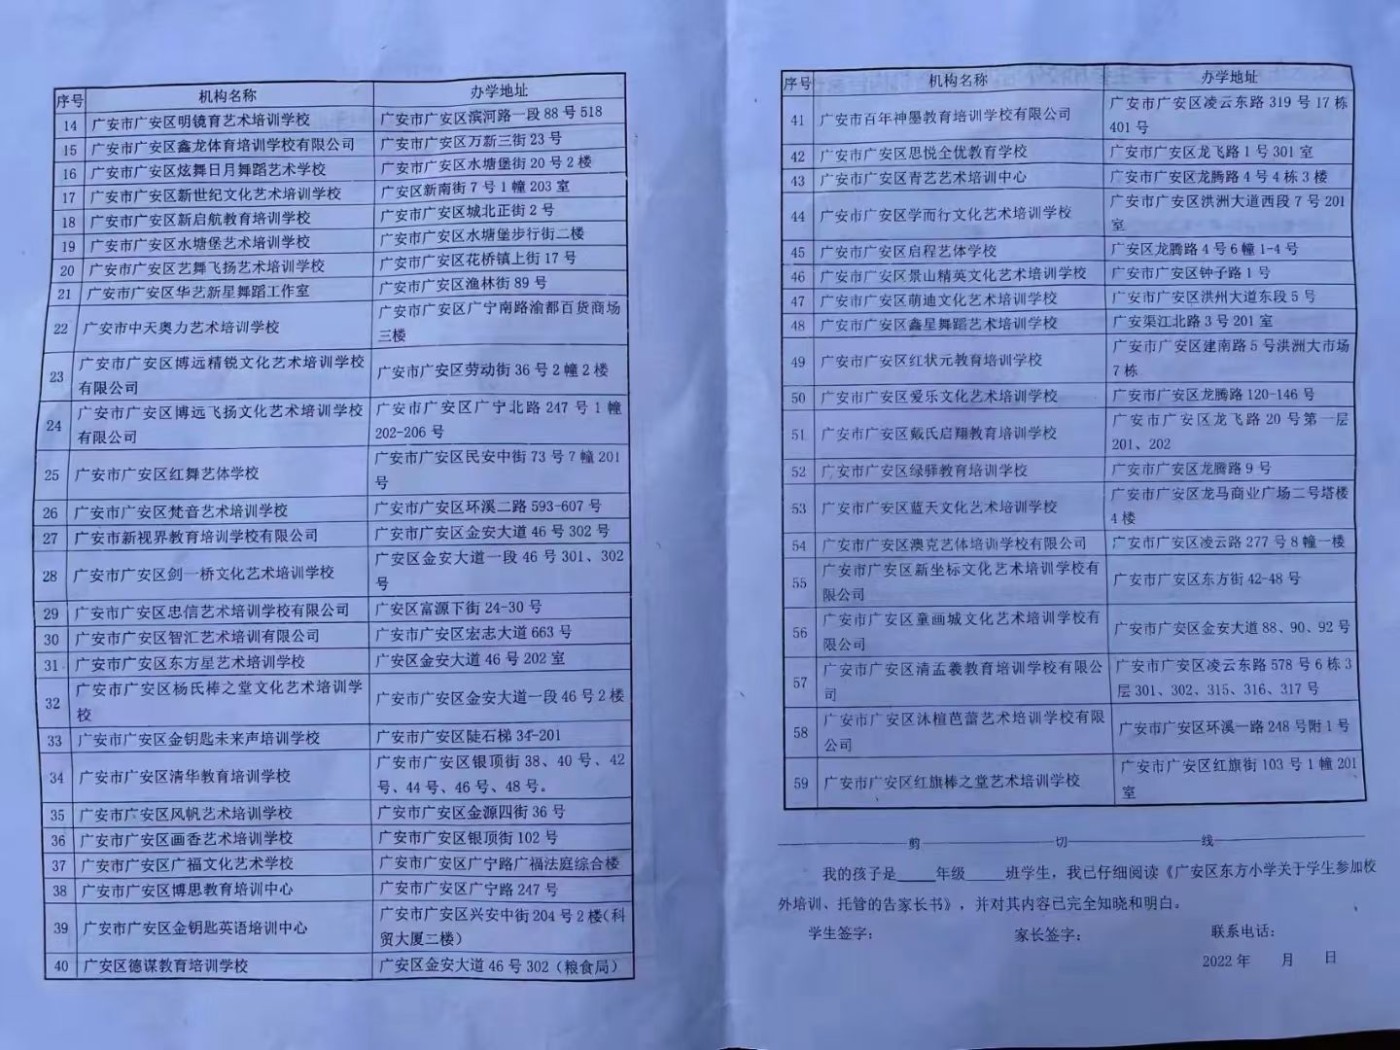 序号 机构名称 办学地址
14 广安市广安区明镜育艺术培训学校 广安市广安区滨河路一段 88 号 518
15 广安市广安区鑫龙体育培训学校有限公司 广安市广安区万新三街 23 号
16 广安市广安区炫舞日月舞蹈艺术学校 广安市广安区水塘堡街 20 号 2 楼
17 广安市广安区新世纪文化艺术培训学校 广安区新南街 7 号 1 幢 203 室
18 广安市广安区新启航教育培训学校 广安市广安区城北正街 2 号
19 广安市广安区水塘堡艺术培训学校 广安市广安区水塘堡步行街二楼
20 广安市广安区艺舞飞扬艺术培训学校 广安市广安区花桥镇上街 17 号
21 广安市广安区华艺新星舞蹈工作室 广安市广安区渔林街 89 号
22 广安市中天奥力艺术培训学校 广安市广安区广宁南路渝都百货商场
三楼
23 广安市广安区博远精锐文化艺术培训学校
有限公司 广安市广安区劳动街 36 号 2 幢 2 楼
24 广安市广安区博远飞扬文化艺术培训学校
有限公司 广安市广安区广宁北路 247 号 1 幢
202-206 号
25 广安市广安区红舞艺体学校 广安市广安区民安中街 73 号 7 幢 201
号
26 广安市广安区梵音艺术培训学校 广安市广安区环溪二路 593-607 号
27 广安市新视界教育培训学校有限公司 广安市广安区金安大道 46 号 302 号
28 广安市广安区剑一桥文化艺术培训学校 广安区金安大道一段 46 号 301、302
号
29 广安市广安区忠信艺术培训学校有限公司 广安区富源下街 24-30 号
30 广安市广安区智汇艺术培训有限公司 广安市广安区宏志大道 663 号
31 广安市广安区东方星艺术培训学校 广安区金安大道 46 号 202 室
32 广安市广安区杨氏棒之堂文化艺术培训学
校 广安市广安区金安大道一段 46 号 2 楼
33 广安市广安区金钥匙未来声培训学校 广安市广安区陡石梯 34-201
34 广安市广安区清华教育培训学校 广安市广安区银顶街 38、40 号、42
号、44 号、46 号、48 号。
35 广安市广安区风帆艺术培训学校 广安市广安区金源四街 36 号
36 广安市广安区画香艺术培训学校 广安市广安区银顶街 102 号
37 广安市广安区广福文化艺术学校 广安市广安区广宁路广福法庭综合楼
38 广安市广安区博思教育培训中心 广安市广安区广宁路 247 号
39 广安市广安区金钥匙英语培训中心 广安市广安区兴安中街 204 号 2 楼（科
贸大厦二楼）
40 广安区德谋教育培训学校 广安区金安大道 46 号 302（粮食局）
序号 机构名称 办学地址
41 广安市百年神墨教育培训学校有限公司 广安市广安区凌云东路 319 号 17 栋
401 号
42 广安市广安区思悦全优教育学校 广安市广安区龙飞路 1 号 301 室
43 广安市广安区青艺艺术培训中心 广安市广安区龙腾路 4 号 4 栋 3 楼
44 广安市广安区学而行文化艺术培训学校 广安市广安区洪洲大道西段 7 号 201
室
45 广安市广安区启程艺体学校 广安区龙腾路 4 号 6 幢 1-4 号
46 广安市广安区景山精英文化艺术培训学校 广安市广安区钟子路 1 号
47 广安市广安区萌迪文化艺术培训学校 广安市广安区洪州大道东段 5 号
48 广安市广安区鑫星舞蹈艺术培训学校 广安渠江北路 3 号 201 室
49 广安市广安区红状元教育培训学校 广安市广安区建南路 5 号洪洲大市场
7 栋
50 广安市广安区爱乐文化艺术培训学校 广安市广安区龙腾路 120-146 号
51 广安市广安区戴氏启翔教育培训学校 广安市广安区龙飞路 20 号第一层
201、202
52 广安市广安区绿驿教育培训学校 广安市广安区龙腾路 9 号
53 广安市广安区蓝天文化艺术培训学校 广安市广安区龙马商业广场二号塔楼
4 楼
54 广安市广安区澳克艺体培训学校有限公司 广安市广安区凌云路 277 号 8 幢一楼
55 广安市广安区新坐标文化艺术培训学校有
限公司 广安市广安区东方街 42-48 号
56 广安市广安区童画城文化艺术培训学校有
限公司 广安市广安区金安大道 88、90、92 号
57 广安市广安区清孟羲教育培训学校有限公
司 广安市广安区凌云东路 578 号 6 栋 3
层 301、302、315、316、317 号
58 广安市广安区沐檀芭蕾艺术培训学校有限
公司 广安市广安区环溪一路 248 号附 1 号
59 广安市广安区红旗棒之堂艺术培训学校 广安市广安区红旗街 103 号 1 幢 201
室
剪 切 线
我的孩子是____年级____班学生，我已仔细阅读《广安区东方小学关于学生参加校
外培训、托管的告家长书》，并对其内容已完全知晓和明白。
学生签字： 家长签字： 联系电话：
2022 年 月 日